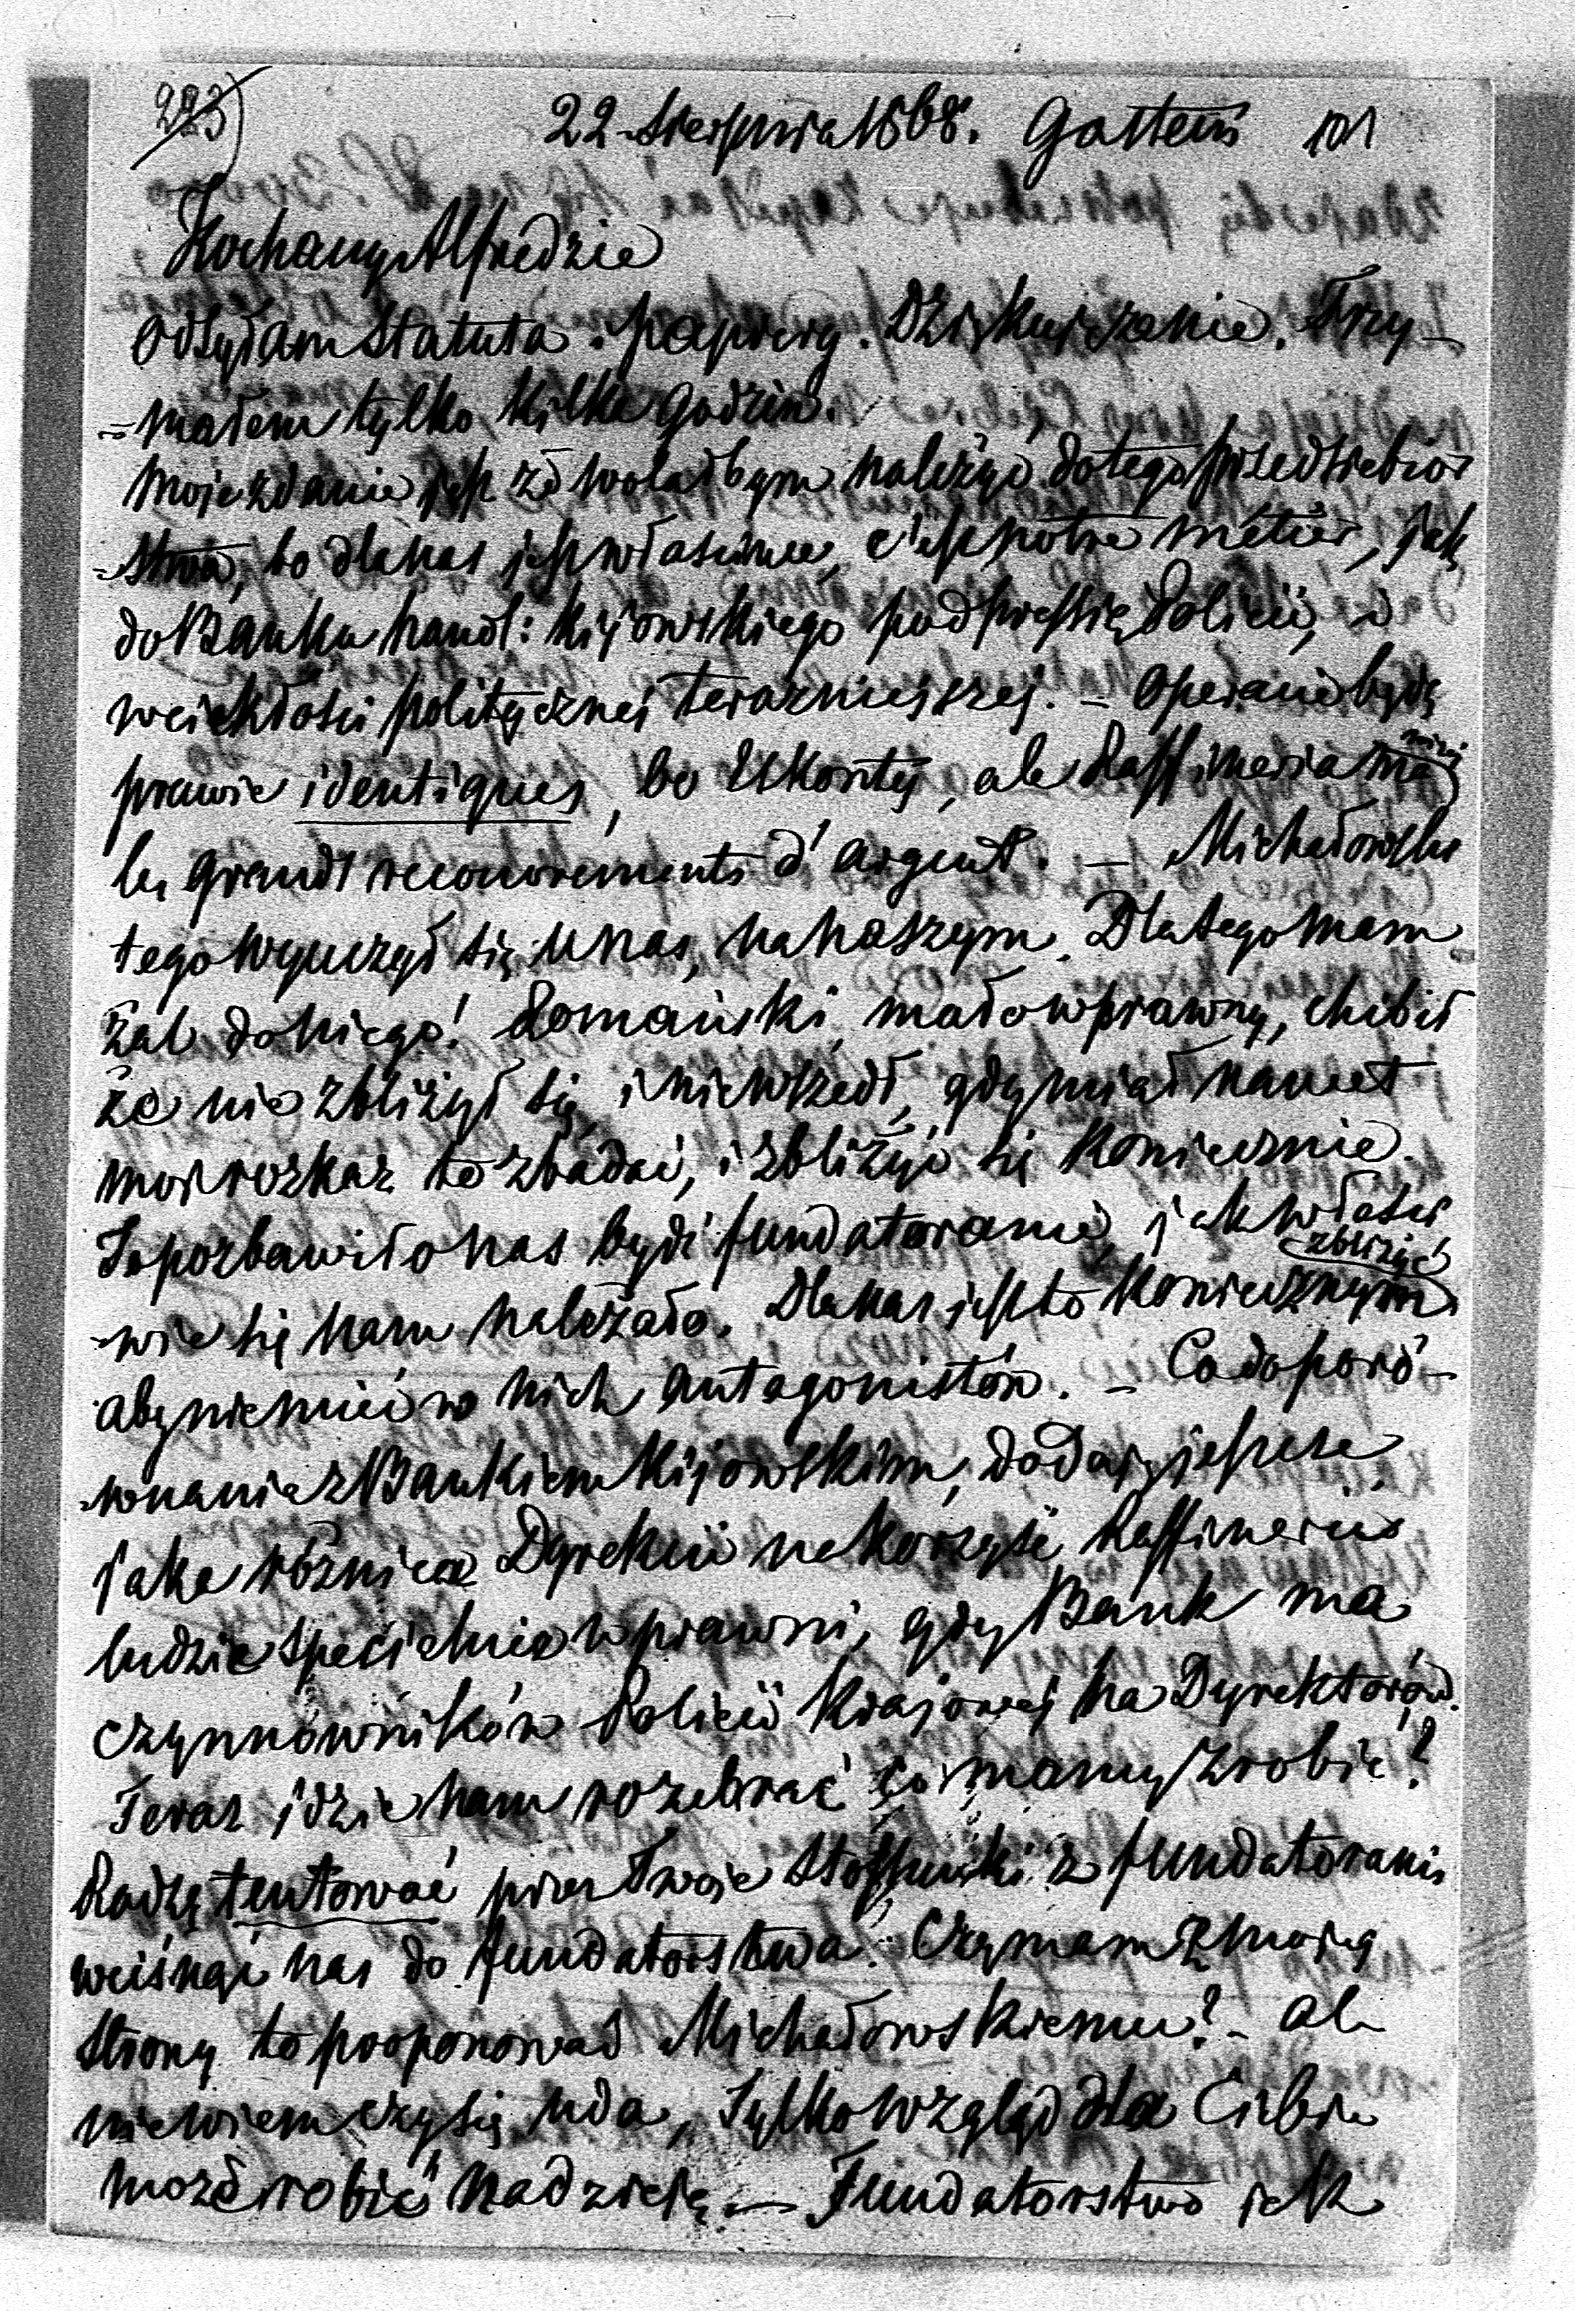 223)
22 Sierpnia 1868. Gastein 101
Kochany Alfredzie
Odsyłam Statuta i papiery. Dziękuję za nie. Trzy-
-małem tylko kilka godzin.
Moje zdanie jest że wolałbym należyć do tego przedsiebior
-stwa, bo dla nas jest właściwe, c'est notre métier, jak
do Banku handl: Kijowskiego pod pressią Policii, i
wściekłości politycznej terazniejszej. – Operacie będą
prawie identiques, bo Eskonty, ale Raffineria ma
les grands recouvrements d'argent. – Michałowski
tego wyuczył się u nas, na naszym. Dlatego mam
żal do niego! Romański mało wprawny, chibił
że nie zbliżył się, i nie wszedł, gdy miał nawet
mój rozkaz to zbadać, i zbliżyć się koniecznie.
To pozbawiło nas być fundatorami, jak właści
zbliżyć
-wie się nam należało. Dla nas jest to koniecznym
aby nie mieć w nich antagonistów. – Co do poró-
-wnania z Bankiem Kijowskim, dodaję jeszcze,
jaka różnica Dyrekcii na korzyść Raffinerii
ludzie specialnie wprawni, gdy Bank ma
czynnówników Policii Krajowej na Dyrektorów.
Teraz idzie nam rozebrać co mamy zrobić?
Radzę tentować przez Twoje stossunki z fundatorami
wcisnąć nas do fundatorstwa. Czy mam z mojej
strony to proponować Michałowskiemu? – ale
nie wiem czy się uda, Tylko wzgląd dla Ciebie
może robić nadzieję. – Fundatorstwo jest